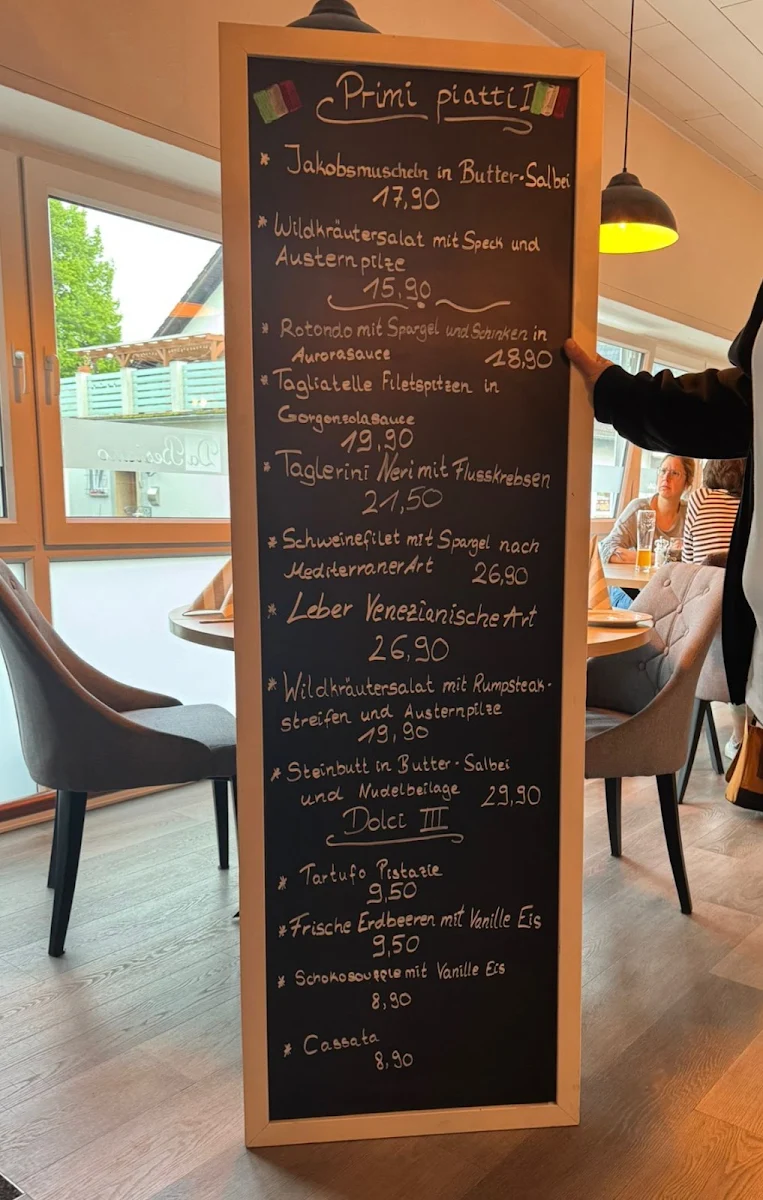 Primi piatti I
* Jakobsmuscheln in Butter-Salbei
17,90
* Wildkräutersalat mit Speck und
Austernpilze
15,90
* Rotondo mit Spargel und Schinken in
Aurorasauce 18,90
* Tagliatelle Filetspitzen in
Gorgonzolasauce
19,90
* Taglerini Neri mit Flusskrebsen
21,50
* Schweinefilet mit Spargel nach
Mediterraner Art 26,90
* Leber Venezianische Art
26,90
* Wildkräutersalat mit Rumpsteak-
streifen und Austernpilze
19,90
* Steinbutt in Butter-Salbei
und Nudelbeilage 29,90
Dolci III
* Tartufo Pistazie
9,50
* Frische Erdbeeren mit Vanille Eis
9,50
* Schokosouffle mit Vanille Eis
8,90
* Cassata
8,90